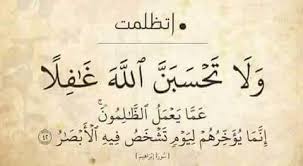 • إتظلمت
وَلَا تَحْسَبَنَّ اللَّهَ غَافِلًا
عَمَّا يَعْمَلُ الظَّالِمُونَ ۚ
إِنَّمَا يُؤَخِّرُهُمْ لِيَوْمٍ تَشْخَصُ فِيهِ الْأَبْصَارُ ﴿٤٢﴾
[سورة إبراهيم]